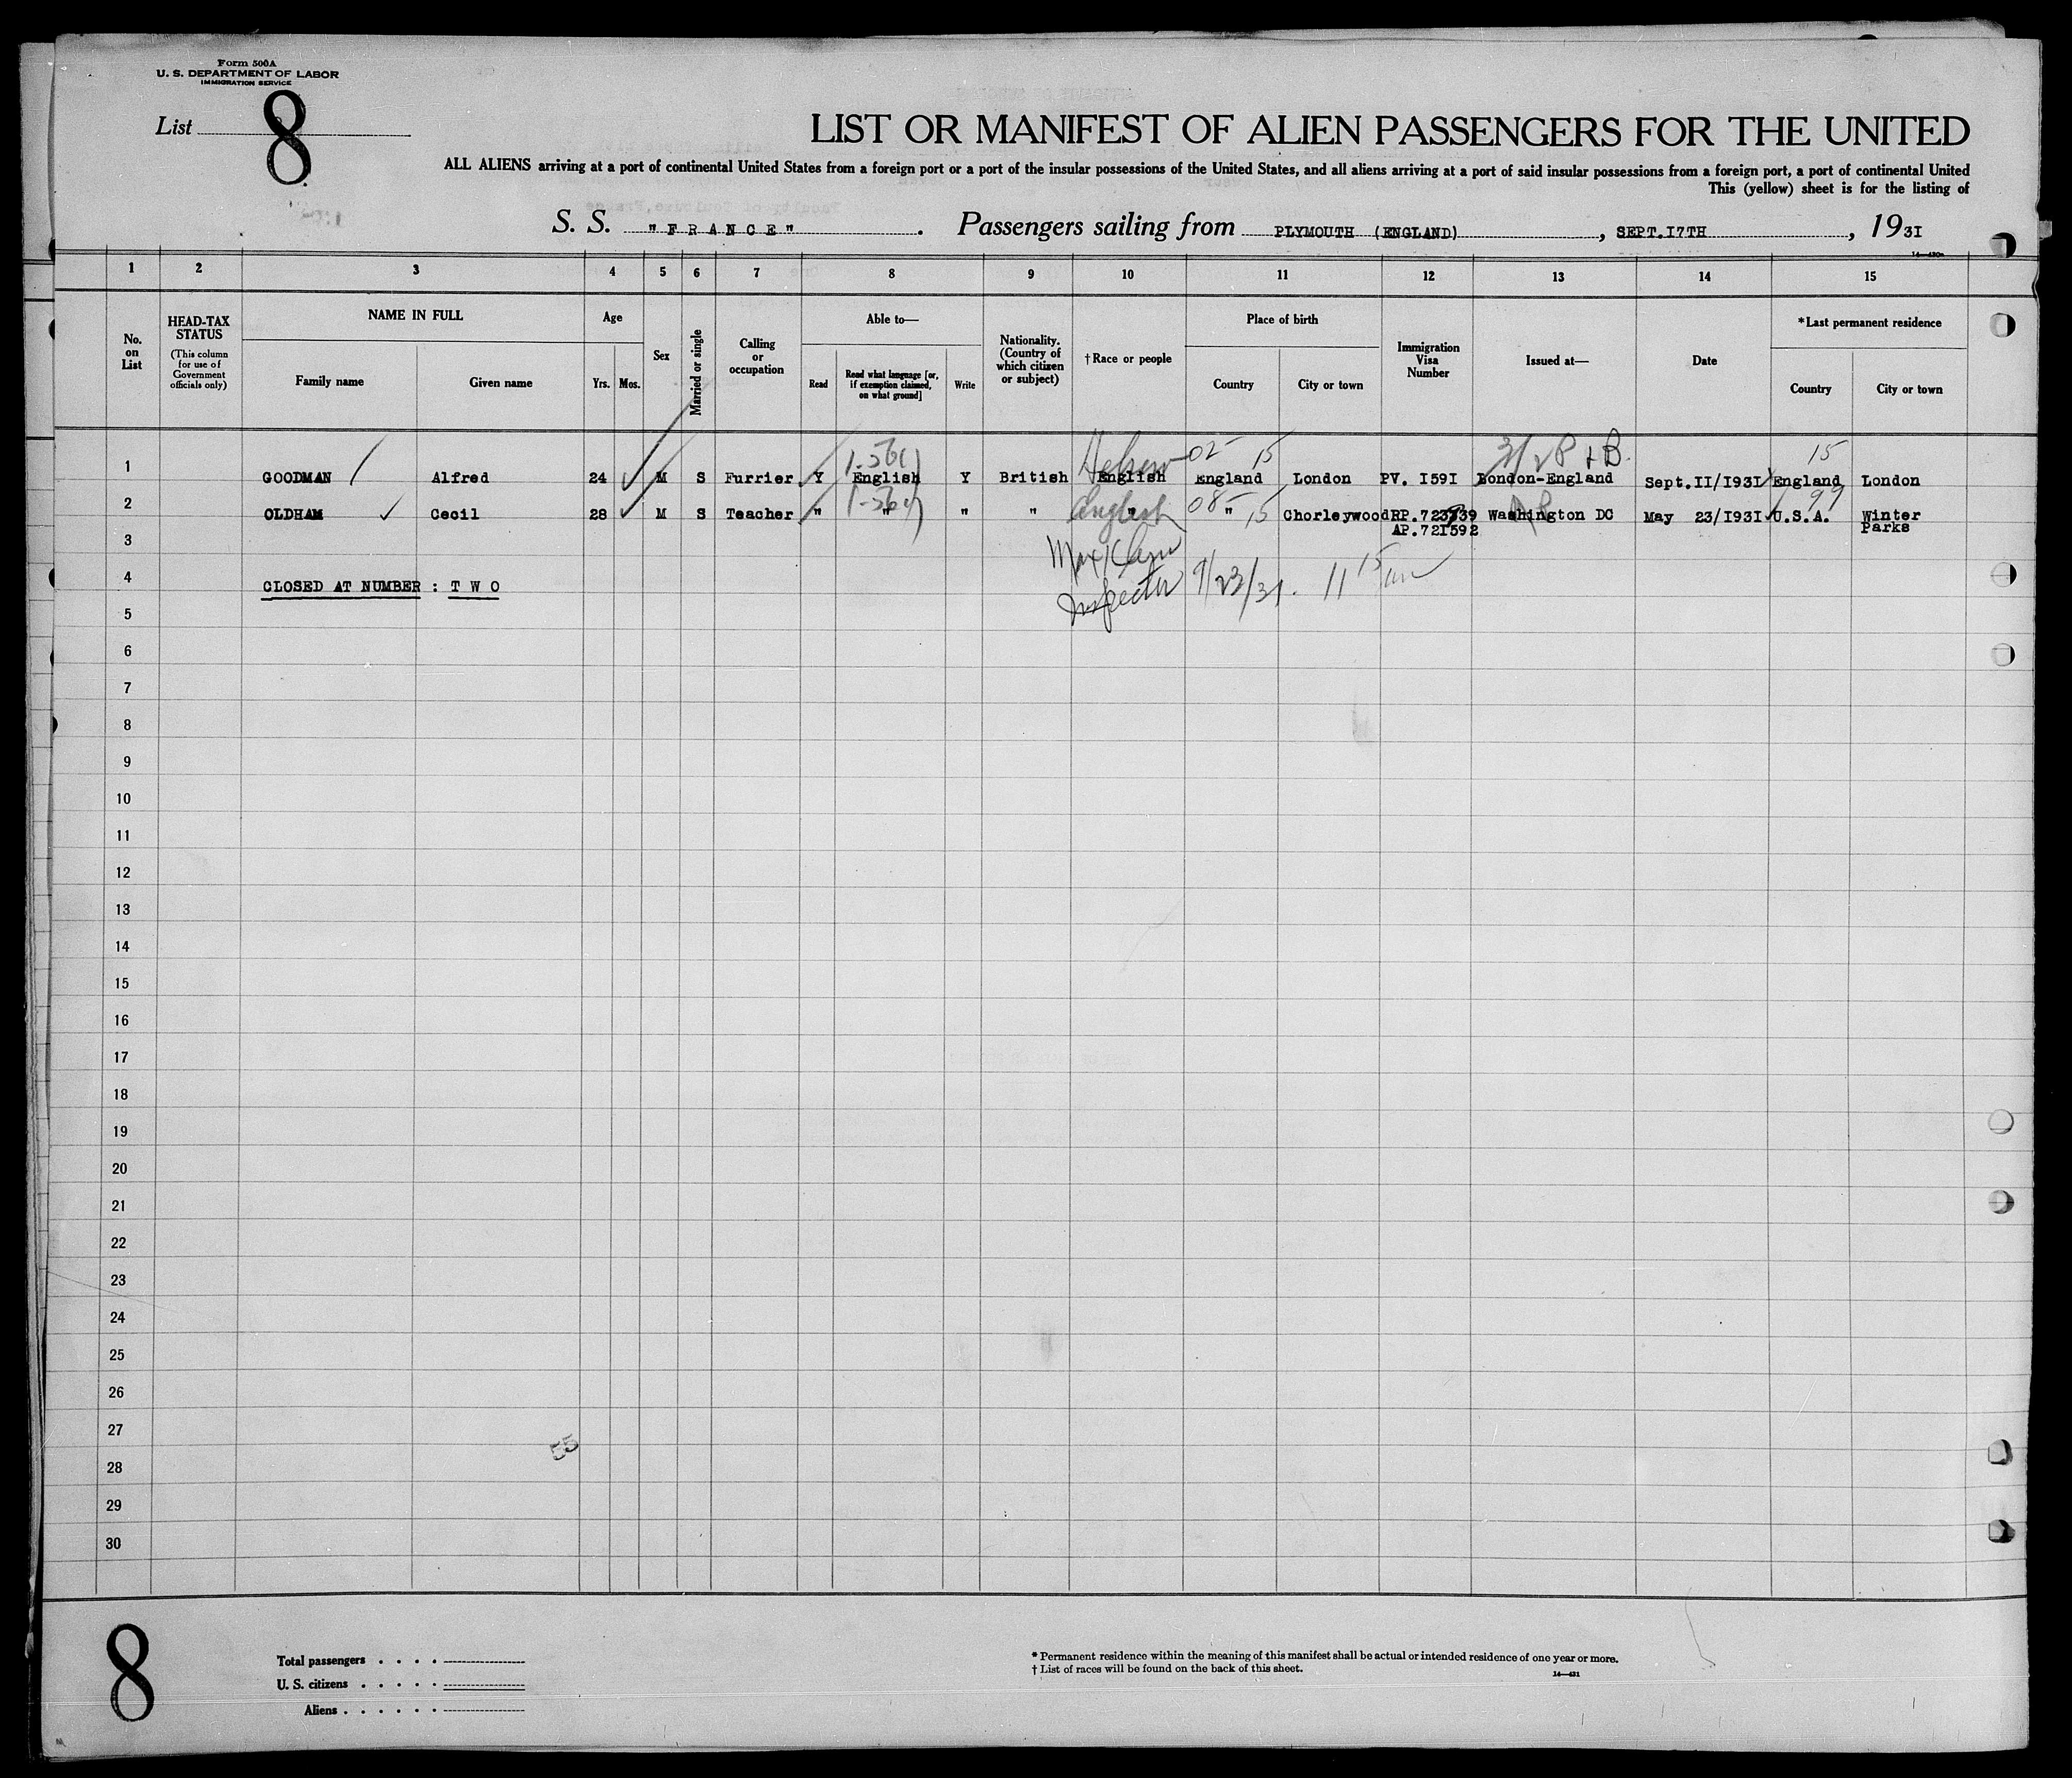 Form 500A
U. S. DEPARTMENT OF LABOR
IMMIGRATION SERVICE
List 8
LIST OR MANIFEST OF ALIEN PASSENGERS FOR THE UNITED
ALL ALIENS arriving at a port of continental United States from a foreign port or a port of the insular possessions of the United States, and all aliens arriving at a port of said insular possessions from a foreign port, a port of continental United
This (yellow) sheet is for the listing of
S. S. "FRANCE". Passengers sailing from PLYMOUTH (ENGLAND), SEPT.I7TH, 1931
1 2 3 4 5 6 7 8 9 10 11 12 13 14 15
No. on List
HEAD-TAX STATUS
(This column for use of Government officials only)
NAME IN FULL
Family name
Given name
Age
Yrs.
Mos.
Sex
Married or single
Calling or occupation
Able to—
Read
Read what language [or, if exemption claimed, on what ground]
Write
Nationality. (Country of which citizen or subject)
†Race or people
Place of birth
Country
City or town
Immigration Visa Number
Issued at—
Date
*Last permanent residence
Country
City or town
Hebrew 02 15 15
1 GOODMAN Alfred 24 M S Furrier Y English Y British English England London PV. I59I London-England Sept.II/I93I England London
English 08 15 99
2 OLDHAM Cecil 28 M S Teacher " " " " " " Chorleywood Washington DC May 23/I93I U.S.A. Winter
AP.72I592 Parks
3
4 CLOSED AT NUMBER : T W O
Inspector 9/23/31. 11 15 am
5
6
7
8
9
10
11
12
13
14
15
16
17
18
19
20
21
22
23
24
25
26
27
55
28
29
30
8
Total passengers . . . .
U. S. citizens . . . . .
Aliens . . . . . .
* Permanent residence within the meaning of this manifest shall be actual or intended residence of one year or more.
† List of races will be found on the back of this sheet.
14—431